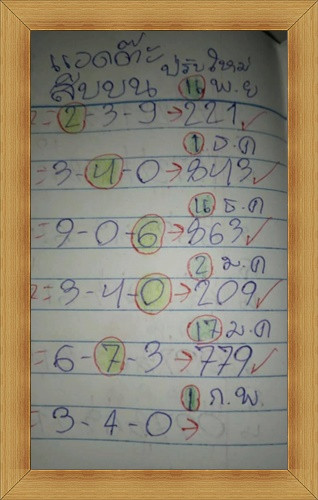 แอดต๊ะ ปรับใหม่
สิบบน 16 พ.ย
2=2-3-9→221✓
1 ธ.ค
=3-4-0→843✓
16 ธ.ค
=9-0-6→863✓
2 ม.ค
2=3-4-0→209✓
17 ม.ค
=6-7-3→779✓
1 ก.พ.
=3-4-0→